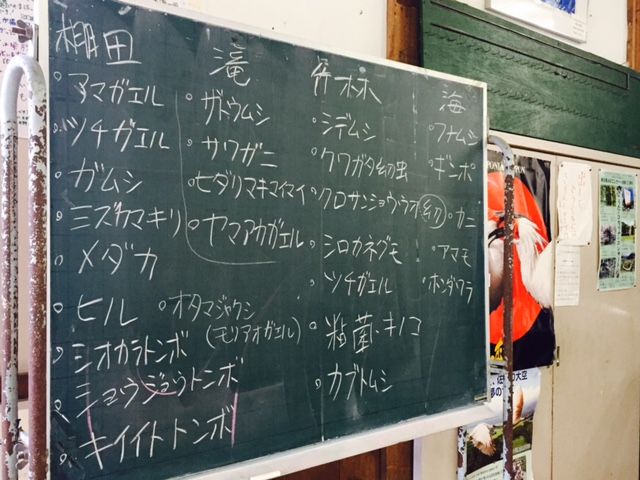 棚田
・アマガエル
・ツチガエル
・ガムシ
・ミズカマキリ
・メダカ
・ヒル
・シオカラトンボ
・ショウジョウトンボ
・キイイトトンボ
滝
・ザトウムシ
・サワガニ
・ヒダリマキマイマイ
・ヤマアカガエル
・オタマジャクシ
(モリアオガエル)
・シデムシ
・クワガタ幼虫
・クロサンショウウオ(幼)
・シロカネグモ
・ツチガエル
・粘菌、キノコ
・カブトムシ
海
・フナムシ
・ギンポ
・カニ
・アマモ
・ホンダワラ